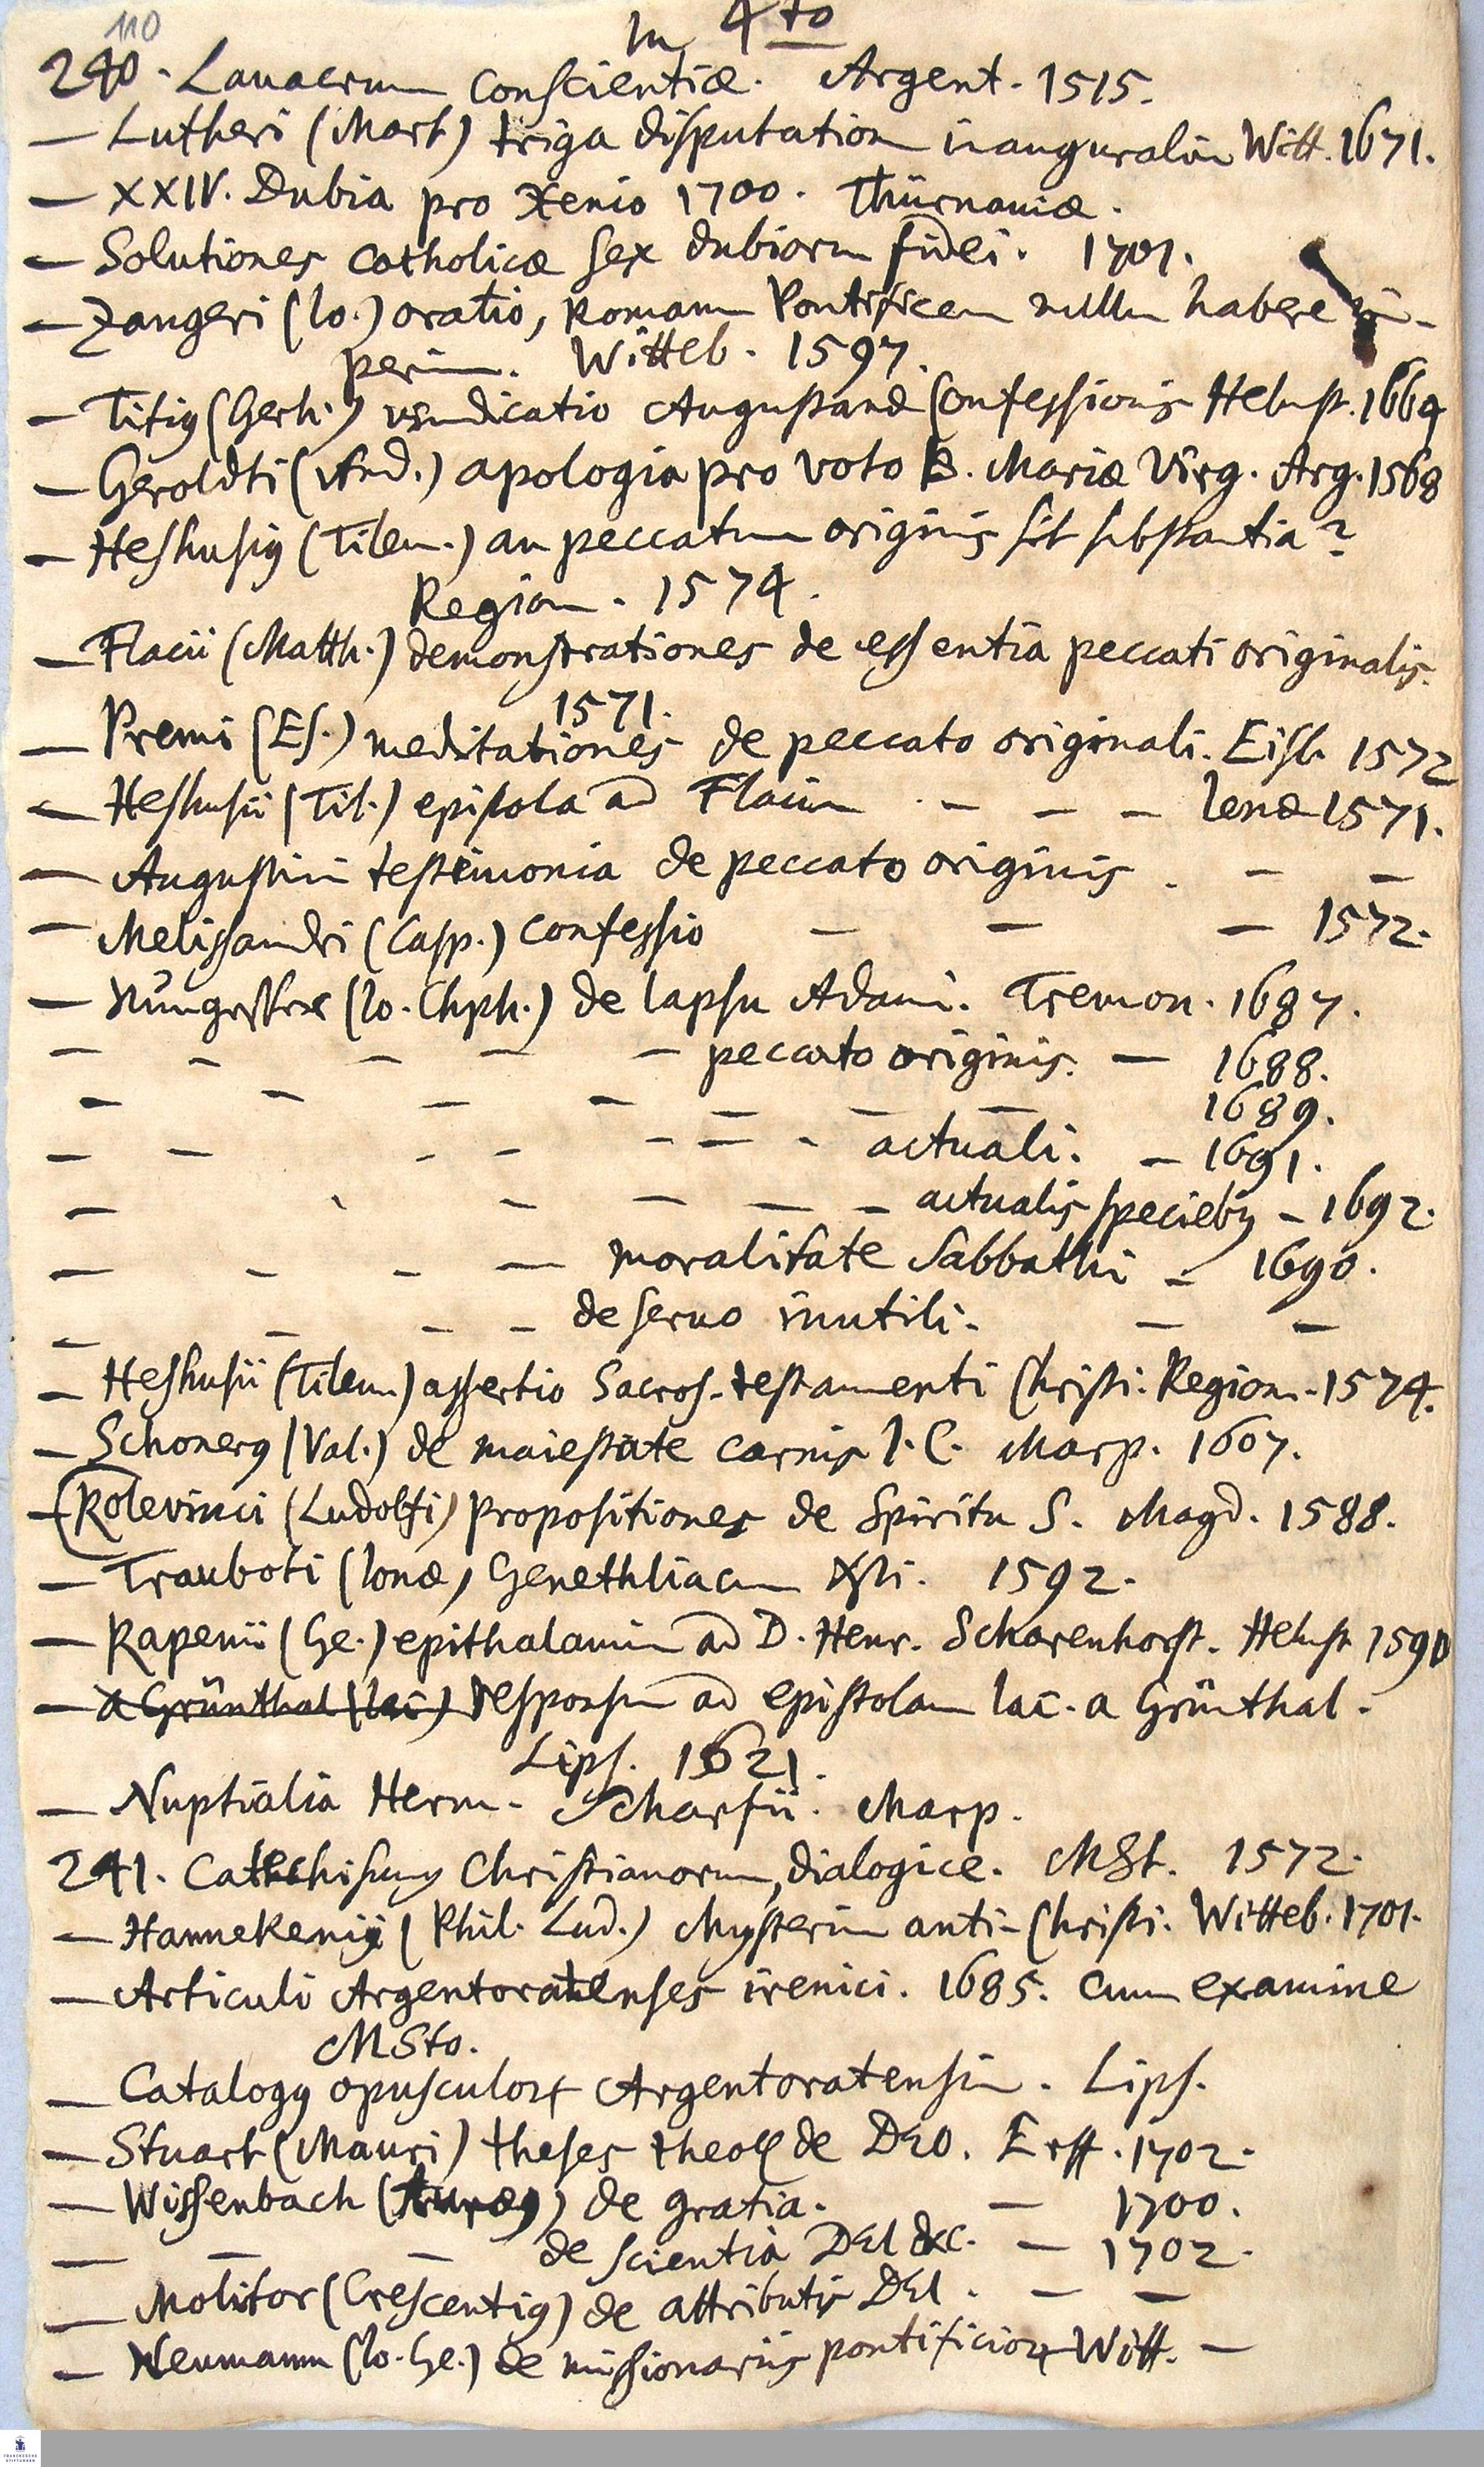 110
In 4to
240. Lauacrum conscientiæ. Argent. 1515.
— Lutheri (Mart) triga disputation inauguralium Witt. 1671.
— XXIV. Dubia pro Xenio 1700. Thürnauiæ.
— Solutiones catholicæ sex dubiorum fidei. 1701.
— Zangeri (Io.) oratio, Romanum Pontificem nullum habere im-
perium. Witteb. 1597.
— Titius (Gerh.) vindicatio Augustanæ Confessionis Helmst. 1664
— Geroldti (And.) apologia pro voto B. Mariæ Virg. Arg. 1568
— Heshusius (Tilem.) an peccatum originis sit substantia?
Regiom. 1574.
— Flacii (Matth.) demonstrationes de essentia peccati originalis.
1571.
— Premi (Es.) meditationes de peccato originali. Eisl. 1572
— Heshusii (Til.) epistola ad Flacium . — — — Ienæ 1571.
— Augustini testimonia de peccato originis . — —
— Melissandri (Casp.) confessio — — — 1572.
— (Io. Chph.) de lapsu Adami. Tremon. 1687.
— — — — — peccato originis. — 1688.
— — — — — — — 1689.
— — — — — — - actuali. — 1691.
— - — — — — actualis speciebus — 1692.
— — — — moralitate Sabbathi — 1690.
— — — — de seruo inutili. — —
— Heshusii (Tilem.) assertio Sacros. testamenti Christi. Regiom. 1574.
— Schonerus (Val.) de maiestate carnis I. C. Marp. 1607.
— Rolevinci (Ludolfi) propositiones de Spiritu S. Magd. 1588.
— Trauboti (Ionæ) Genethliacum Xsti. 1592.
— Rapenii (Ge.) epithalamium ad D. Henr. Scharenhorst. Helmst. 1590
— a Grünthal (Iac) responsum ad epistolam Iac. a Grünthal.
Lips. 1621.
— Nuptialia Herm. Scharfii. Marp.
241. Catechismus Christianorum, dialogice. MSt. 1572.
— Hannekenii (Phil. Lud.) Mysterium anti-Christi. Witteb. 1701.
— Articuli Argentoratenses irenici. 1685. cum examine
MSto.
— Catalogus opusculorum Argentoratensium. Lips.
— Stuart (Mauri) theses theol. de DEO. Erff. 1702.
— Wissenbach () de gratia. — 1700.
— — — de scientia DEI &c. — 1702.
— Molitor (Crescentius) de attributis DEI. — —
— Neumann (Io. Ge.) de missionariis pontificiorum Witt. —